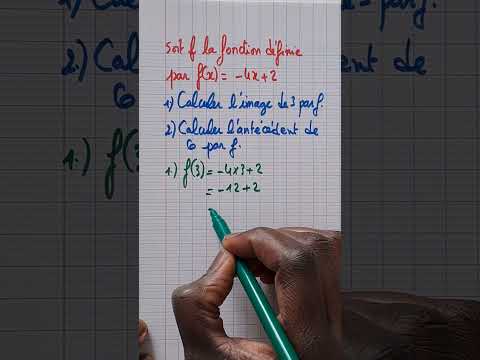 soit f la fonction définie
par f(x) = -4x+2
1) Calculer l'image de 3 par f.
2) Calculer l'antécédent de
6 par f.
1.) f(3) = -4×3+2
= -12+2